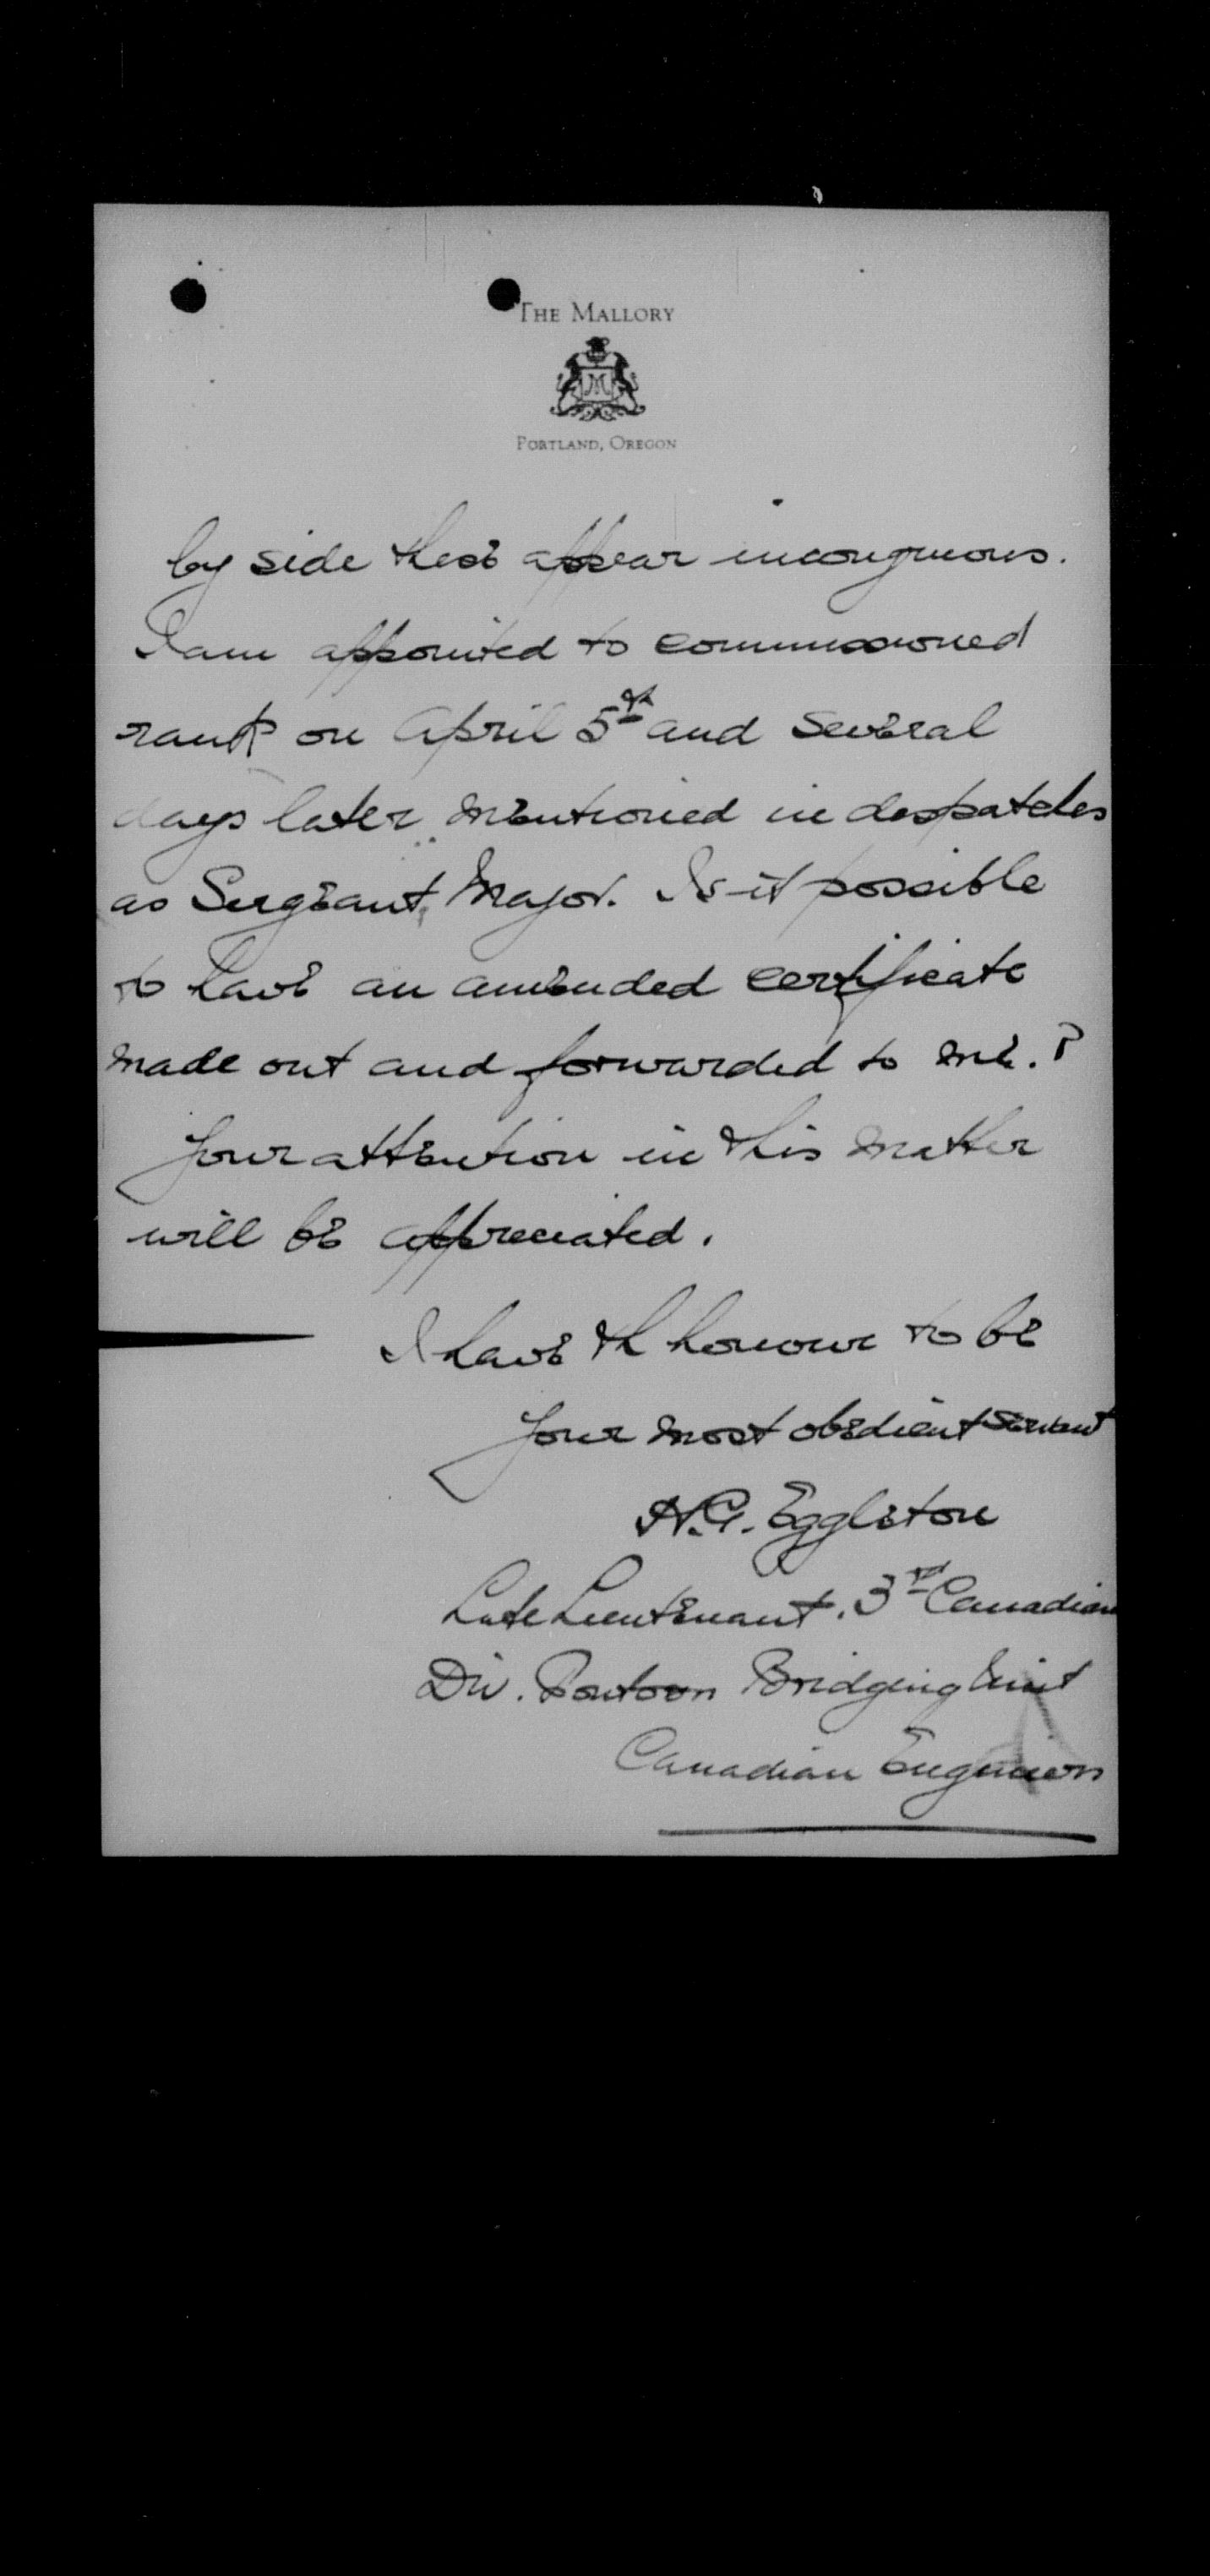 THE MALLORY
M
PORTLAND, OREGON
by side these appear incongruous.
I am appointed to commissioned
rank on April 5th and several
days later mentioned in despatches
as Sergeant Major. Is it possible
to have an amended certificate
made out and forwarded to me.?
Your attention in this matter
will be appreciated.
I have th honour to be
Your most obedient servant
H.G. Eggleton
Late Lieutenant. 3rd Canadian
Div. Pontoon Bridging Unit
Canadian Engineers